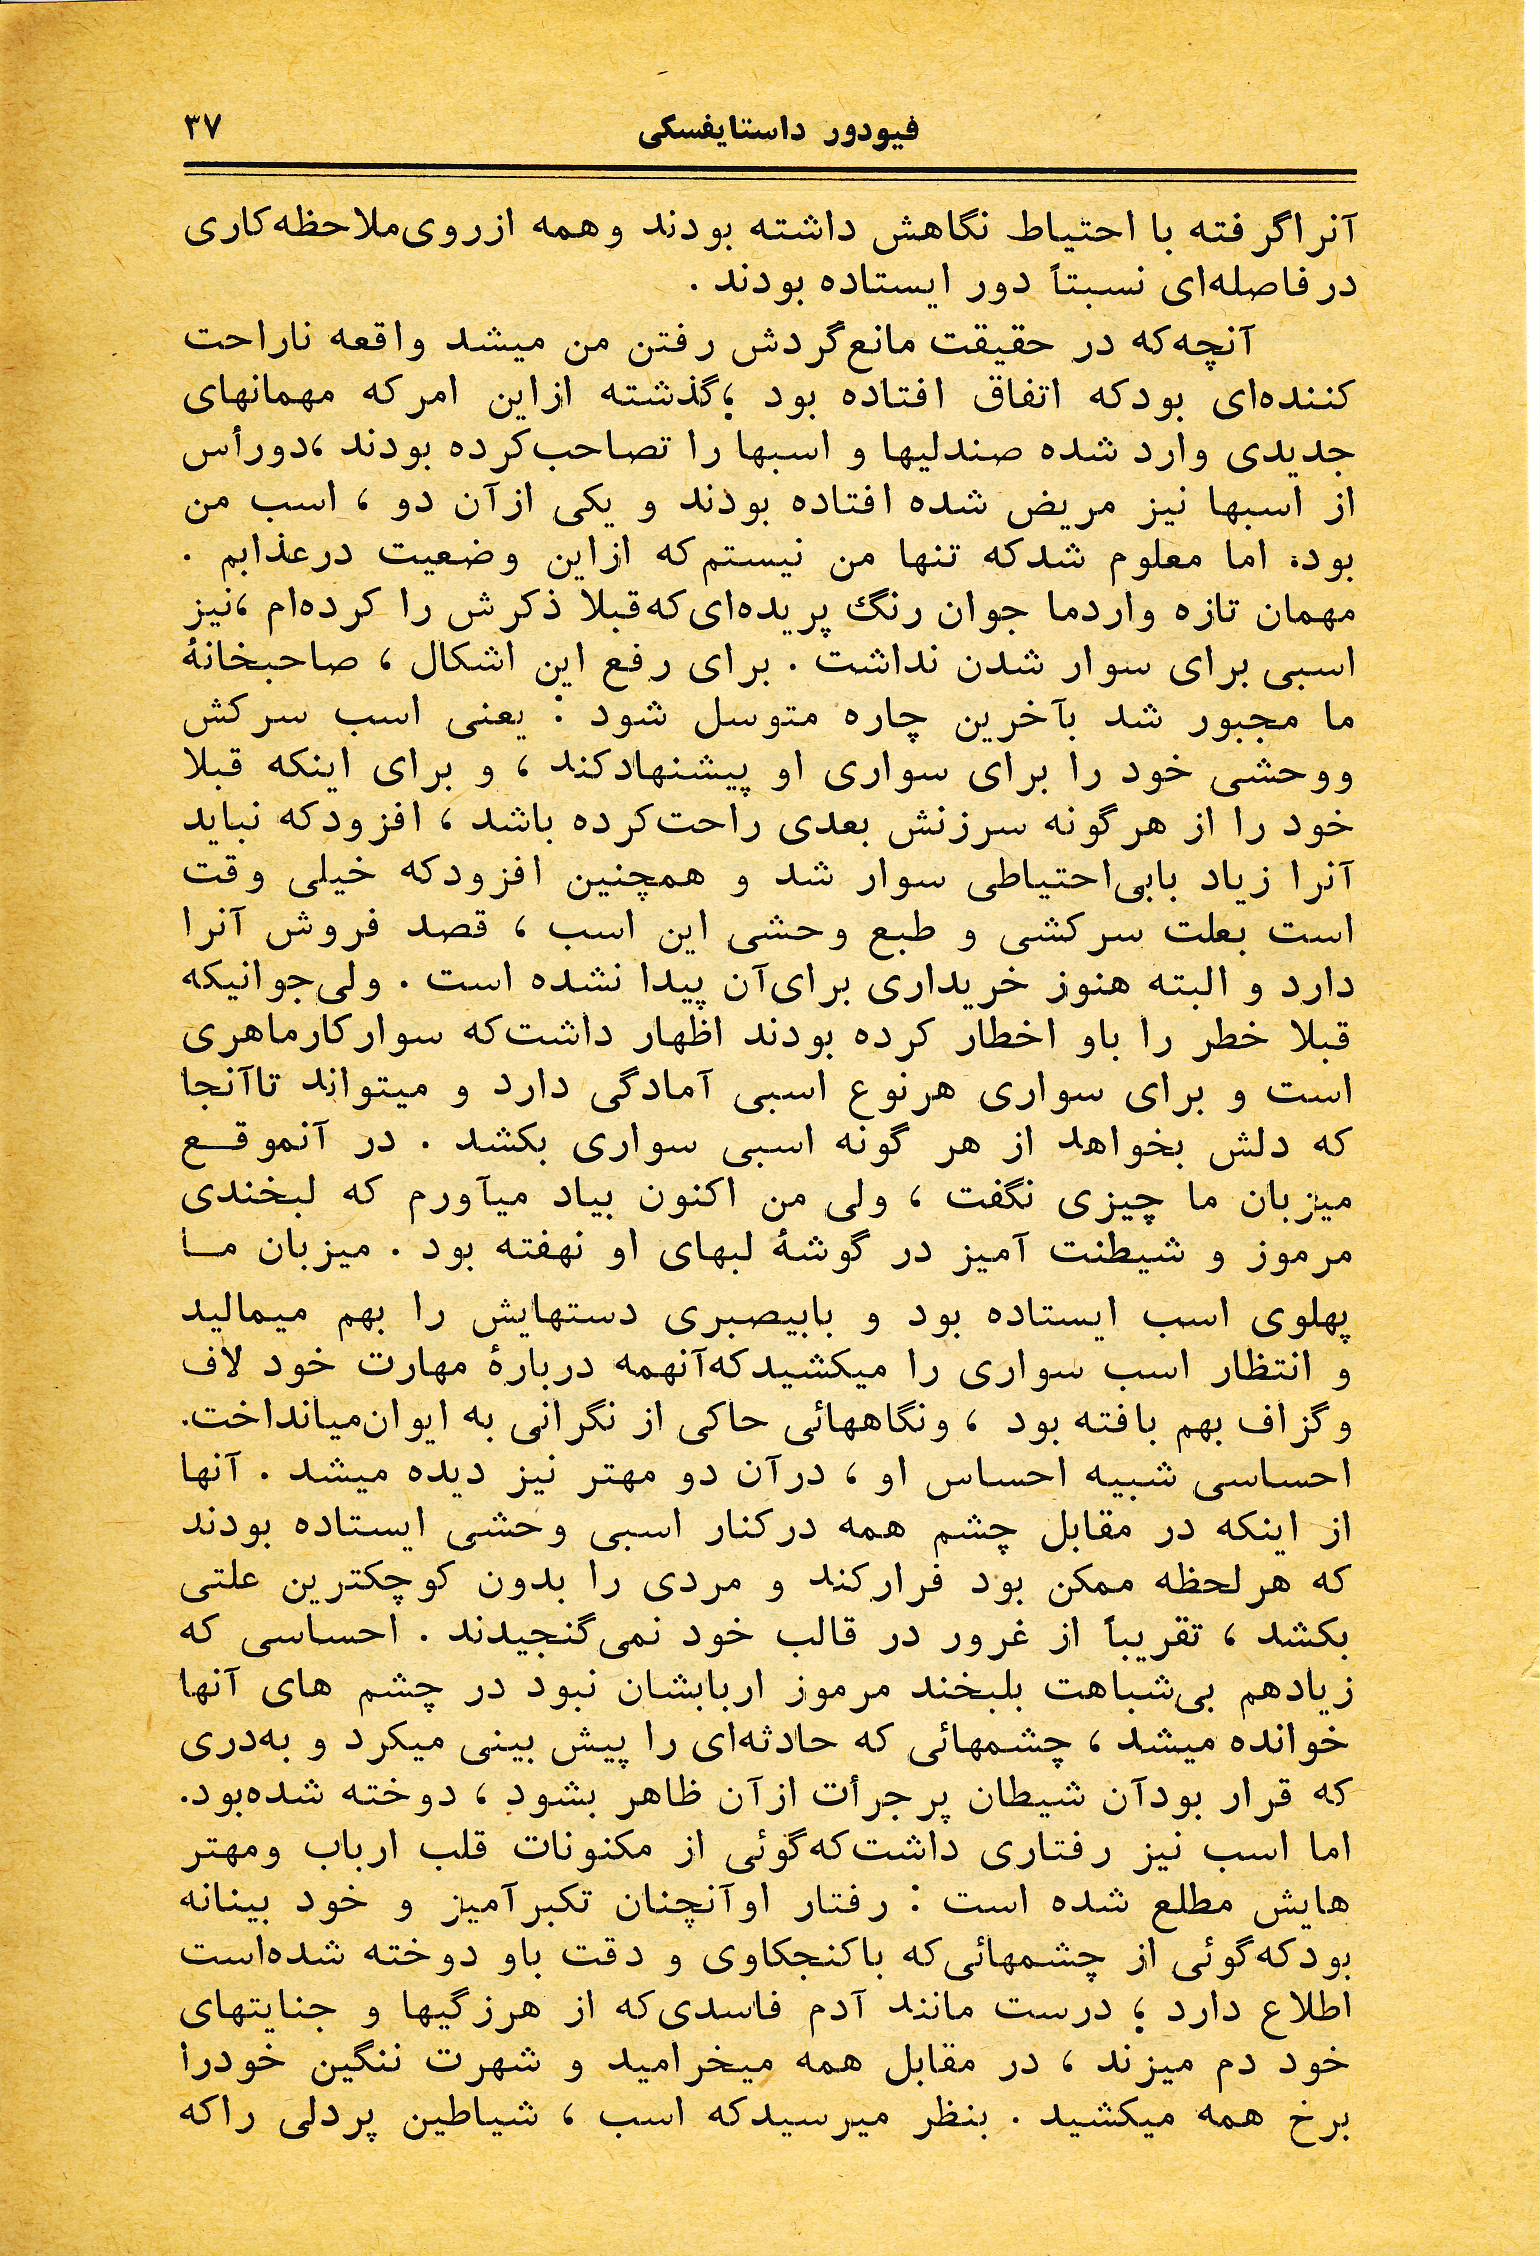 فیودور داستایفسکی ۳۷
آنراگرفته با احتیاط نگاهش داشته بودند وهمه ازروی‌ملاحظه‌کاری
درفاصله‌ای نسبتاً دور ایستاده بودند .
آنچه‌که در حقیقت مانع‌گردش رفتن من میشد واقعه ناراحت
کننده‌ای بودکه اتفاق افتاده بود ؛گذشته ازاین امرکه مهمانهای
جدیدی وارد شده صندلیها و اسبها را تصاحب‌کرده بودند ،دورأس
از اسبها نیز مریض شده افتاده بودند و یکی ازآن دو ، اسب من
بود. اما معلوم شدکه تنها من نیستم‌که ازاین وضعیت درعذابم .
مهمان تازه واردما جوان رنگ پریده‌ای‌که‌قبلا ذکرش را کرده‌ام ،نیز
اسبی برای سوار شدن نداشت . برای رفع این اشکال ، صاحبخانهٔ
ما مجبور شد بآخرین چاره متوسل شود : یعنی اسب سرکش
ووحشی خود را برای سواری او پیشنهادکند ، و برای اینکه قبلا
خود را از هرگونه سرزنش بعدی راحت‌کرده باشد ، افزودکه نباید
آنرا زیاد بابی‌احتیاطی سوار شد و همچنین افزودکه خیلی وقت
است بعلت سرکشی و طبع وحشی این اسب ، قصد فروش آنرا
دارد و البته هنوز خریداری برای‌آن پیدا نشده است . ولی‌جوانیکه
قبلا خطر را باو اخطار کرده بودند اظهار داشت‌که سوارکارماهری
است و برای سواری هرنوع اسبی آمادگی دارد و میتواند تاآنجا
که دلش بخواهد از هر گونه اسبی سواری بکشد . در آنموقـع
میزبان ما چیزی نگفت ، ولی من اکنون بیاد میآورم که لبخندی
مرموز و شیطنت آمیز در گوشهٔ لبهای او نهفته بود . میزبان مـا
پهلوی اسب ایستاده بود و بابیصبری دستهایش را بهم میمالید
و انتظار اسب سواری را میکشیدکه‌آنهمه دربارهٔ مهارت خود لاف
وگزاف بهم بافته بود ، ونگاههائی حاکی از نگرانی به ایوان‌میانداخت.
احساسی شبیه احساس او ، درآن دو مهتر نیز دیده میشد . آنها
از اینکه در مقابل چشم همه درکنار اسبی وحشی ایستاده بودند
که هرلحظه ممکن بود فرارکند و مردی را بدون کوچکترین علتی
بکشد ، تقریباً از غرور در قالب خود نمی‌گنجیدند . احساسی که
زیادهم بی‌شباهت بلبخند مرموز اربابشان نبود در چشم های آنها
خوانده میشد ، چشمهائی که حادثه‌ای را پیش بینی میکرد و به‌دری
که قرار بودآن شیطان پرجرأت ازآن ظاهر بشود ، دوخته شده‌بود.
اما اسب نیز رفتاری داشت‌که‌گوئی از مکنونات قلب ارباب ومهتر
هایش مطلع شده است : رفتار اوآنچنان تکبرآمیز و خود بینانه
بودکه‌گوئی از چشمهائی‌که باکنجکاوی و دقت باو دوخته شده‌است
اطلاع دارد ؛ درست مانند آدم فاسدی‌که از هرزگیها و جنایتهای
خود دم میزند ، در مقابل همه میخرامید و شهرت ننگین خودرا
برخ همه میکشید . بنظر میرسیدکه اسب ، شیاطین پردلی راکه